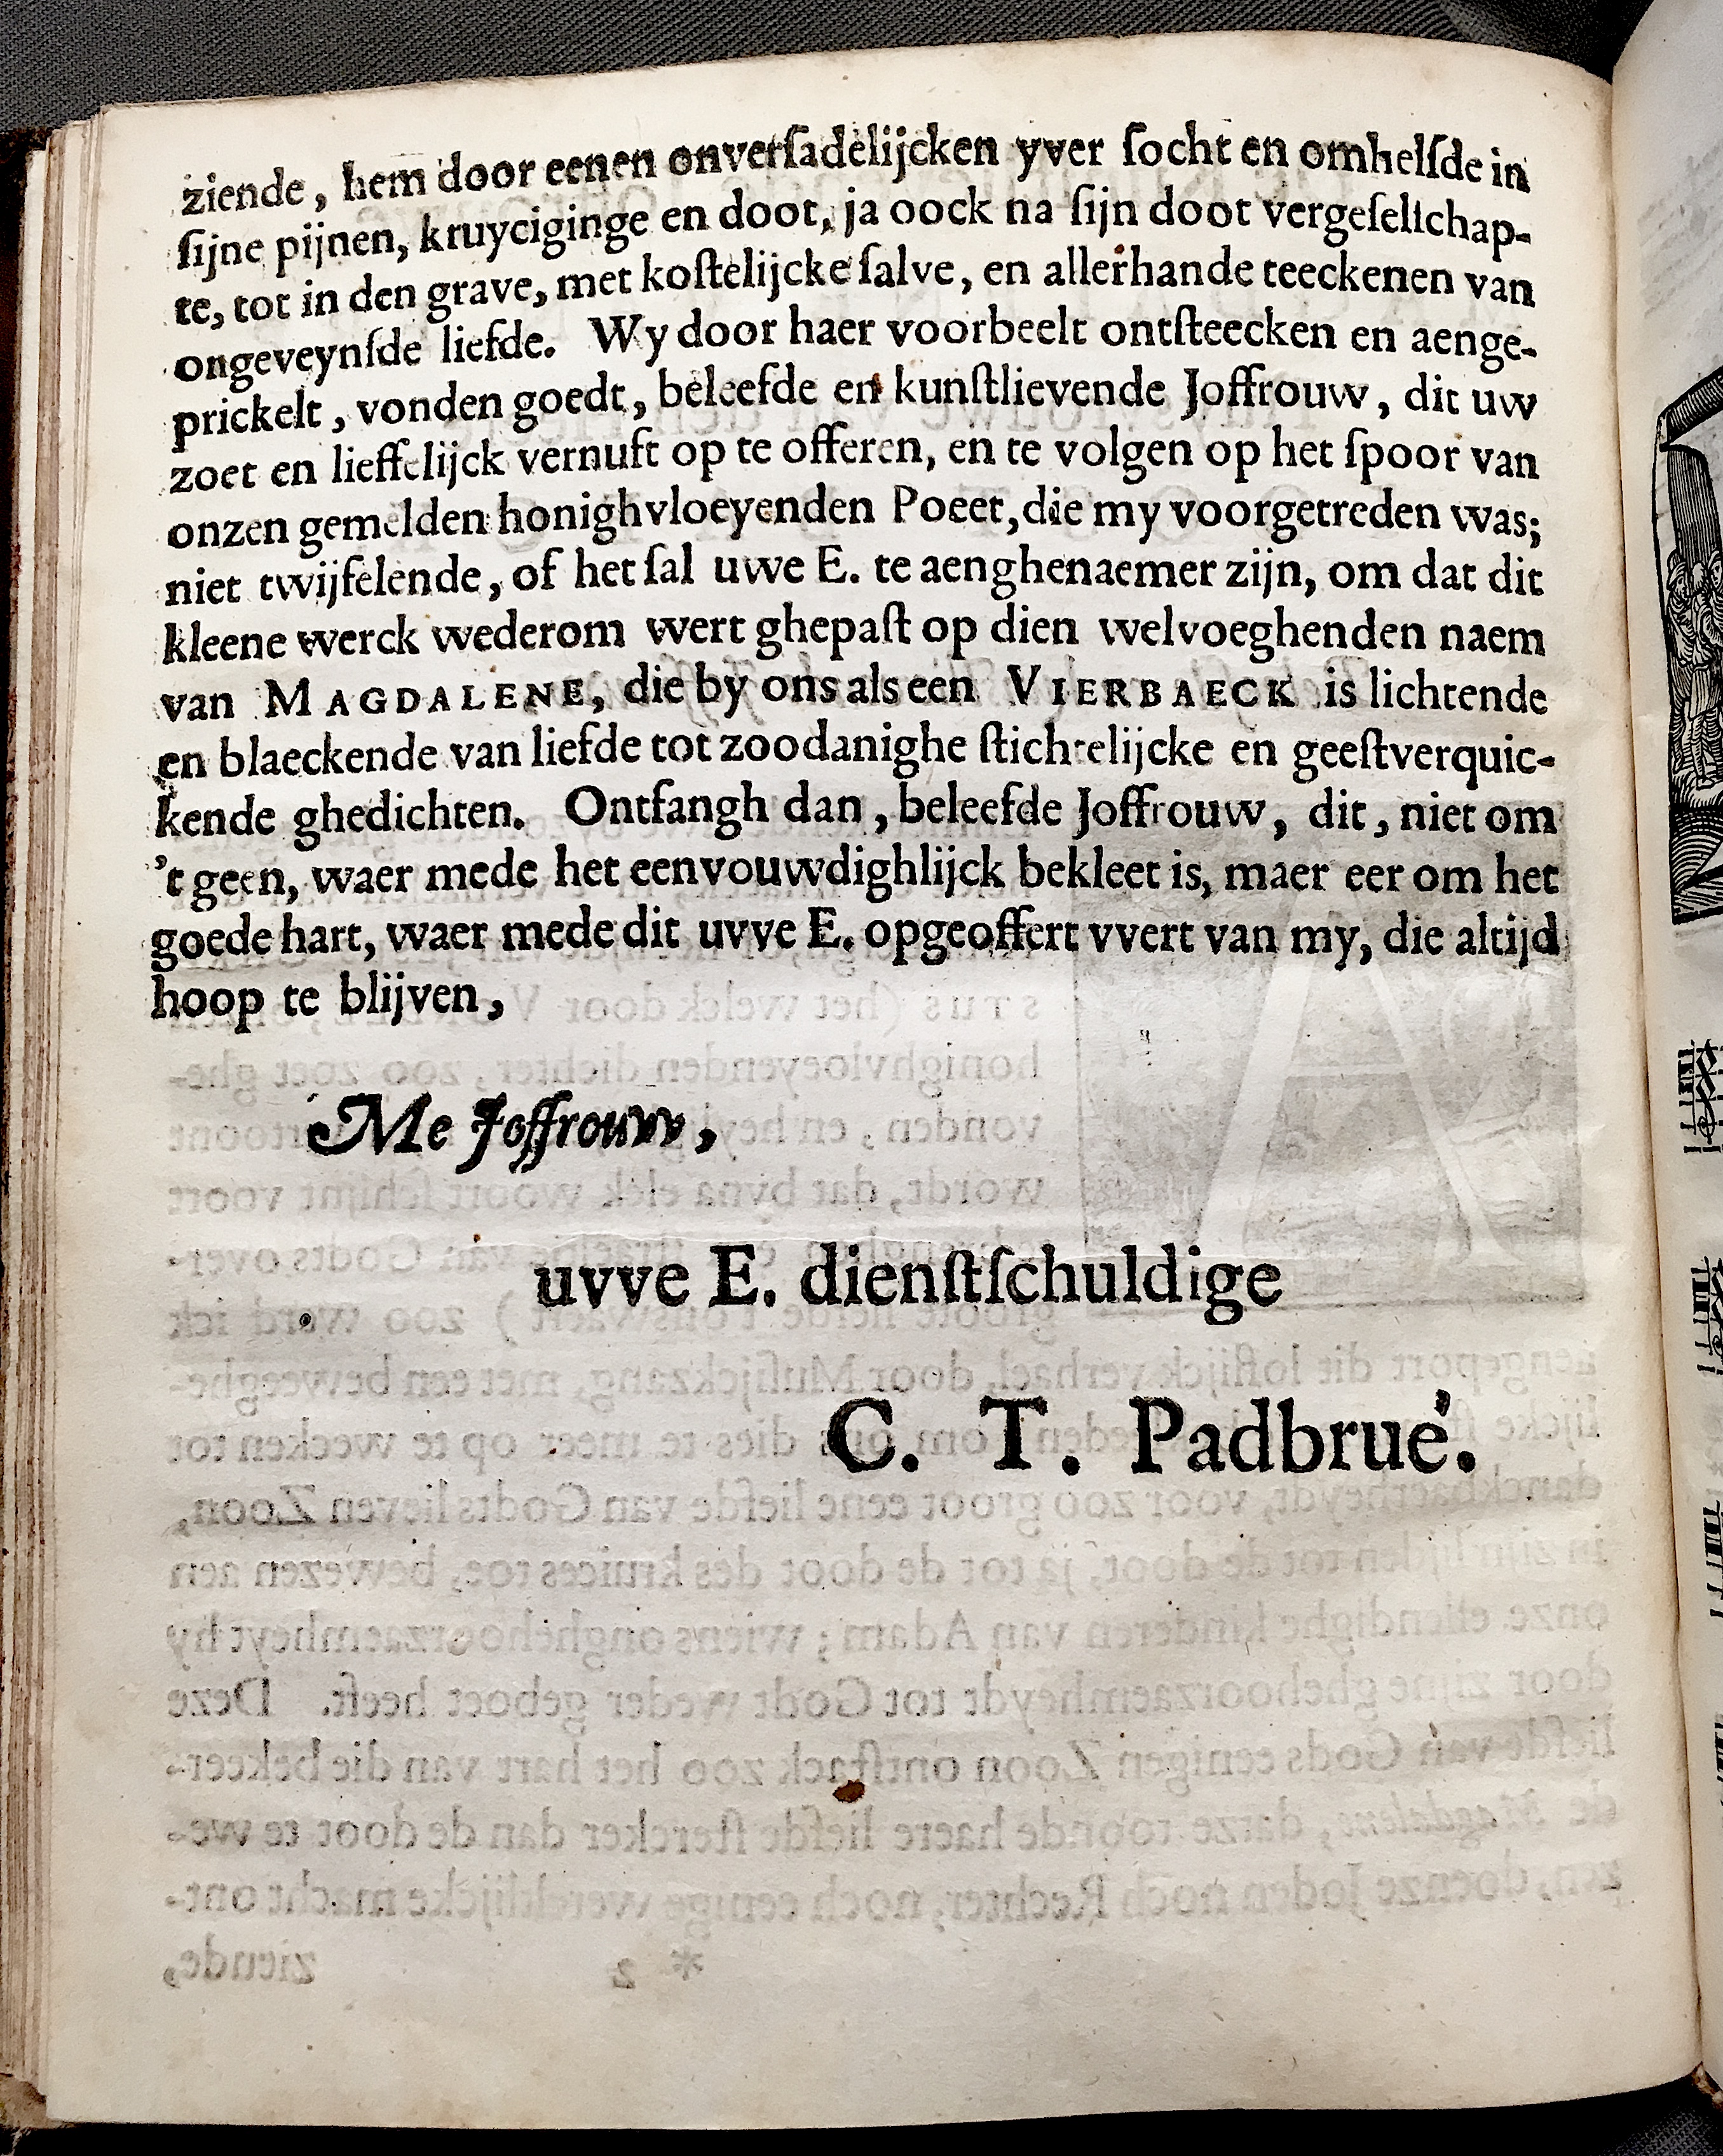 ziende, hem door eenen onverſadelijcken yver ſocht en omhelſde in
ſijne pijnen, kruyciginge en doot, ja oock na ſijn doot vergeſelſchap-
te, tot in den grave, met koſtelijcke ſalve, en allerhande teeckenen van
ongeveynſde liefde. Wy door haer voorbeelt ontſteecken en aenge-
prickelt, vonden goedt, beleefde en kunſtlievende Joffrouw, dit uw
zoet en lieffelijck vernuft op te offeren, en te volgen op het ſpoor van
onzen gemelden honighvloeyenden Poeet, die my voorgetreden was;
niet twijfelende, of het ſal uwe E. te aenghenaemer zijn, om dat dit
kleene werck wederom wert ghepaſt op dien welvoeghenden naem
van MAGDALENE, die by ons als een VIERBAECK is lichtende
en blaeckende van liefde tot zoodanighe ſtichtelijcke en geeſtverquic-
kende ghedichten. Ontfangh dan, beleefde Joffrouw, dit, niet om
't geen, waer mede het eenvouwdighlijck bekleet is, maer eer om het
goede hart, waer mede dit uvve E. opgeoffert vvert van my, die altijd
hoop te blijven,
Me Joffrouvv,
uvve E. dienſtſchuldige
C. T. Padbrué.